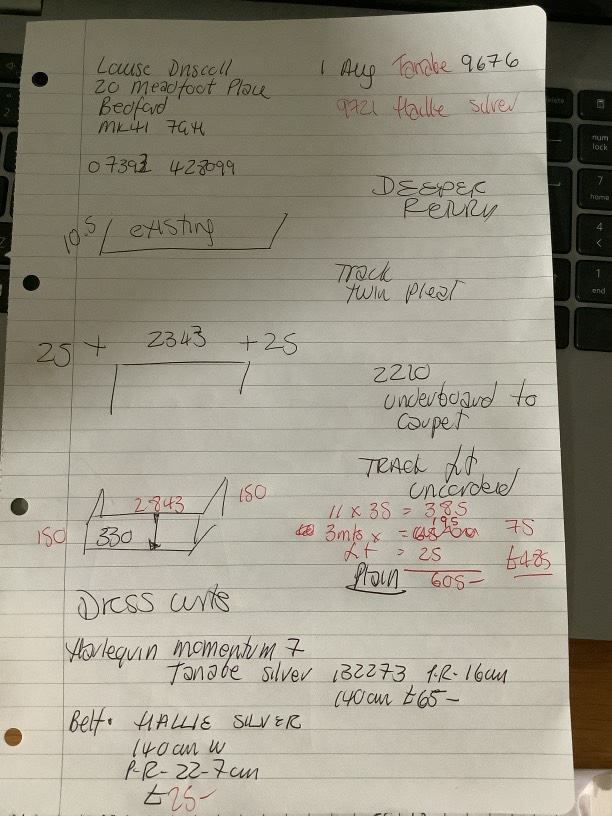 Louise Driscoll
20 Meadfoot Place
Bedford
MK41 7GH
07392 428099
1 Aug Tanabe 9676
9721 Hallie silver
DEEPER
10.5 existing
Track
twin pleat
25 + 2343 + 25
2210
underboard to
carpet
TRACK
uncorded
2843 150
150 330
11 x 35 = 385
3mts x = 195 75
= 25 £485
Plain 605-
Dress curts
Harlequin momentum 7
Tanabe silver 132273 P.R- 16cm
140cm £65-
Belt. HALLIE SILVER
140cm W
P-R- 22-7cm
£25-